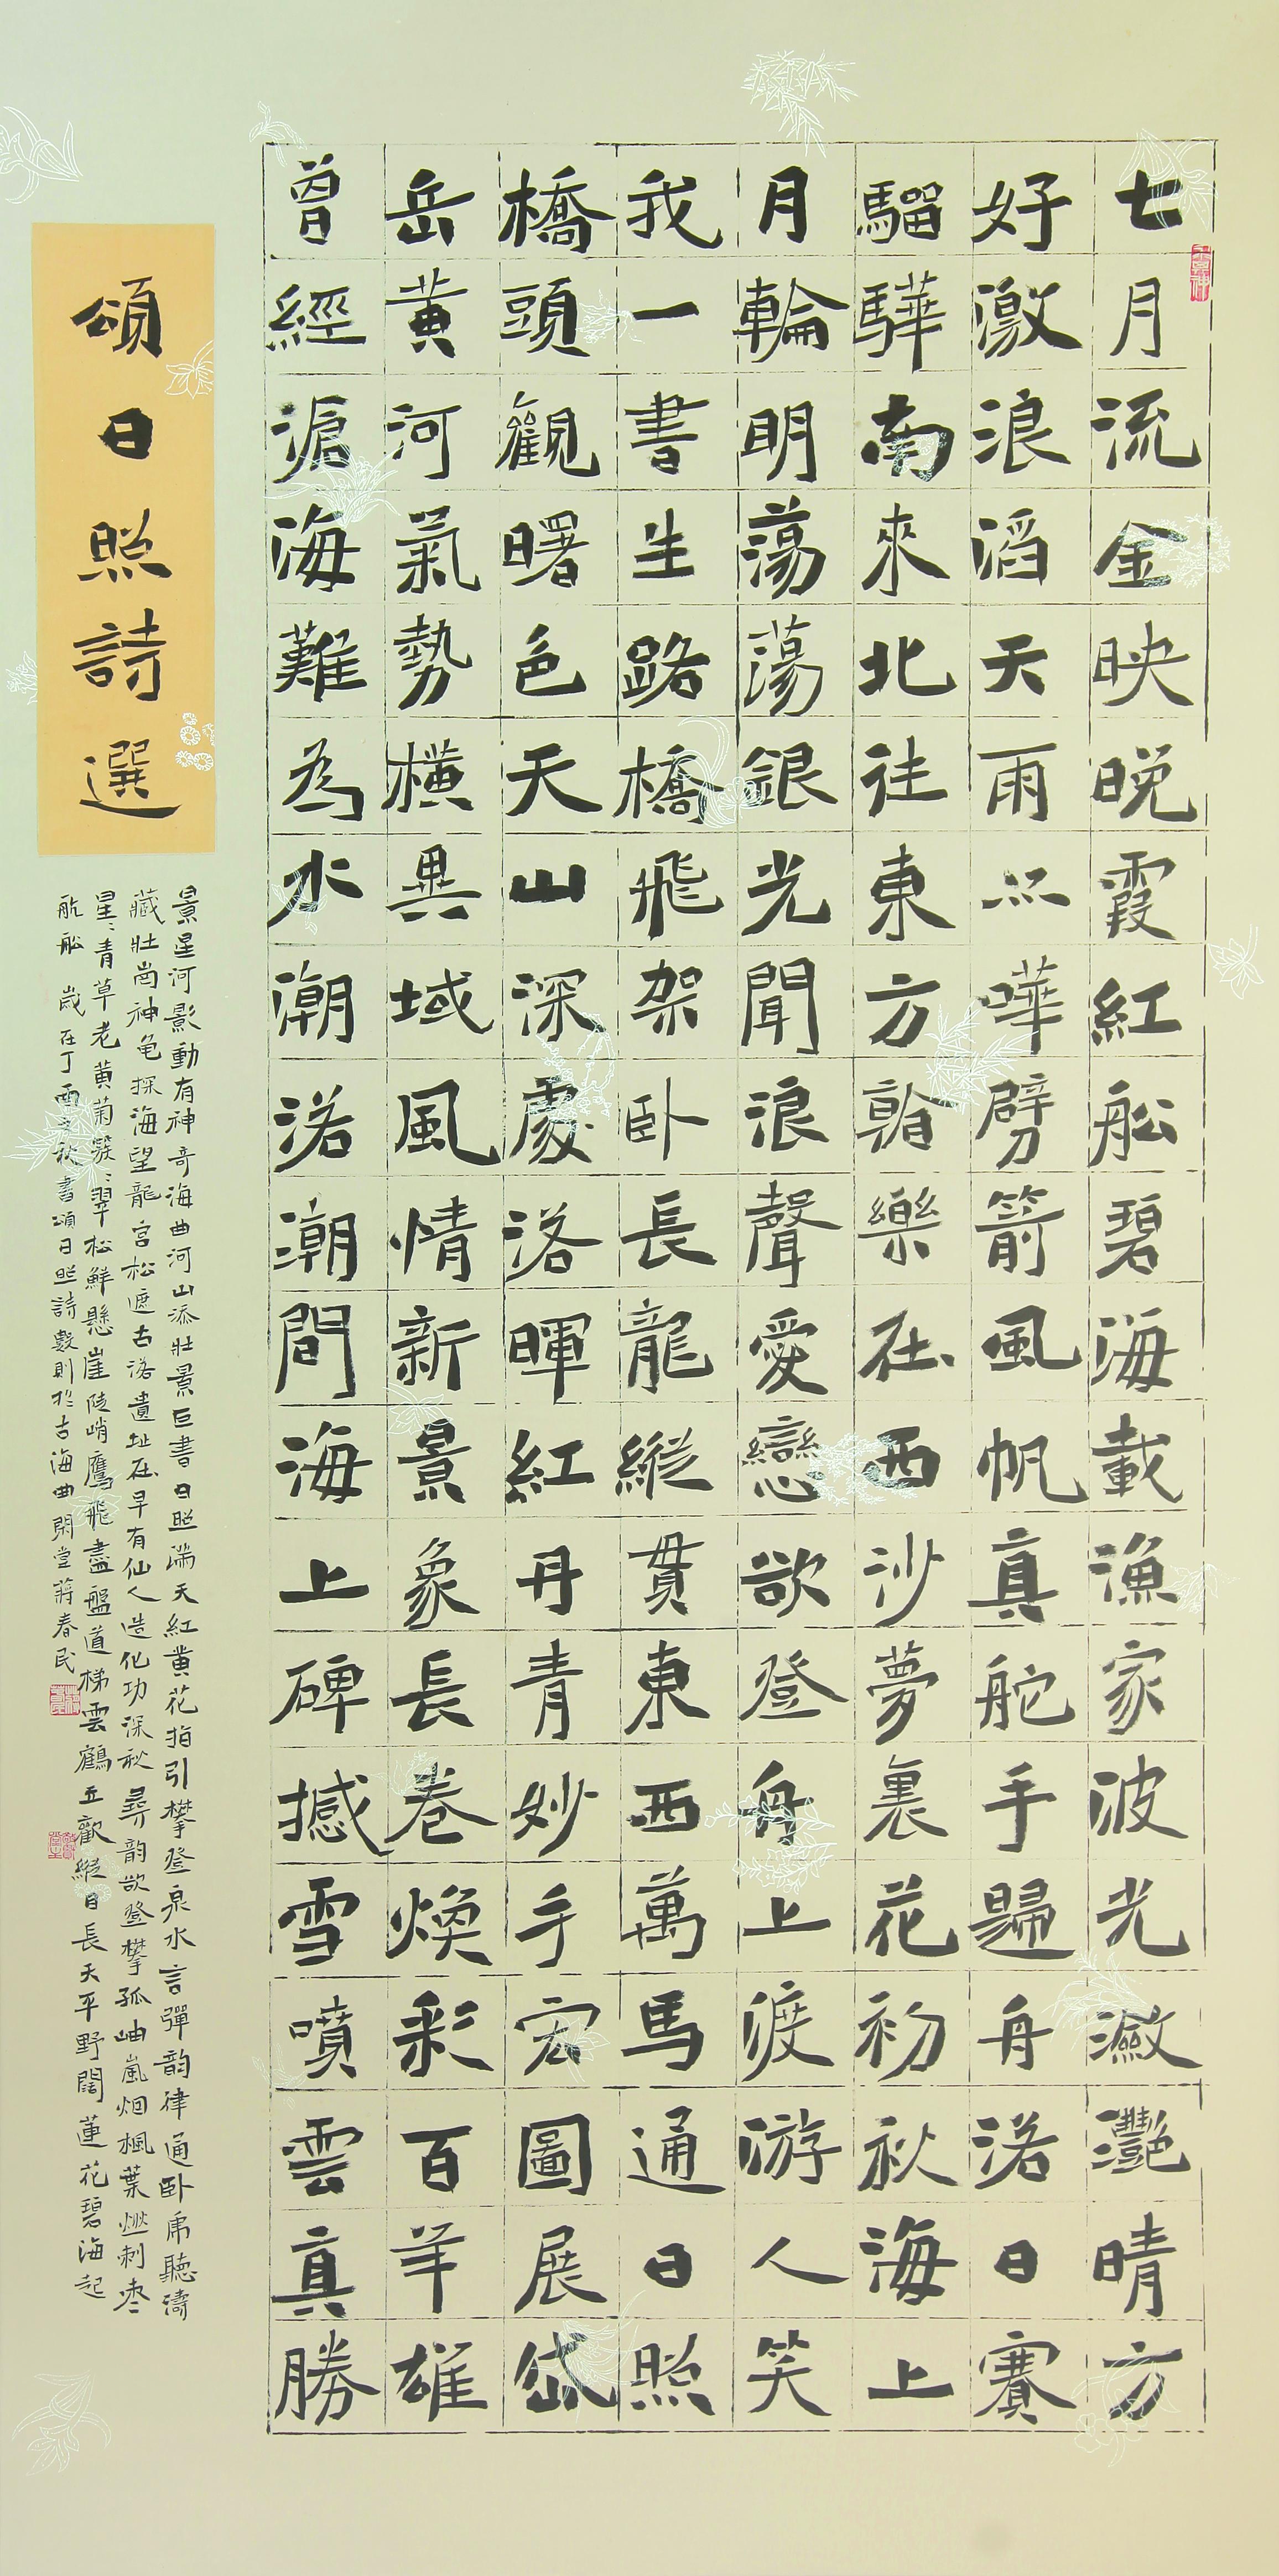 七月流金映晚霞紅船碧海載漁家波光瀲灩晴方
好激浪滔天雨亦嘩劈箭風帆真舵手歸舟落日賽
騮驊南來北往東方韻樂在西沙夢裏花初秋海上
月輪明蕩蕩銀光聞浪聲愛戀欲登舟上渡游人笑
我一書生路橋飛架卧長龍縱貫東西萬馬通日照
橋頭觀曙色天山深處落暉紅丹青妙手宏圖展岱
岳黃河氣勢橫異域風情新景象長卷煥彩百羊雄
曾經滄海難為水潮落潮間海上碑撼雪噴雲真勝
頌日照詩選
景星河影動有神奇海曲河山添壯景巨書日照滿天紅黃花指引攀登泉水言彈韵律通卧虎聽濤
藏壯崗神龟探海望龍宮松遮古洛遺址在早有仙人造化功深秋尋韵欲登攀孤岫嵐烟楓葉燃刺枣
星ミ青草老黃菊簇ミ翠松鮮懸崖陡峭鷹飛盡盤道梯雲鶴立歡縱目長天平野闊蓮花碧海起
航船 歲在丁酉之秋書頌日照詩數則於古海曲閑堂蔣春民